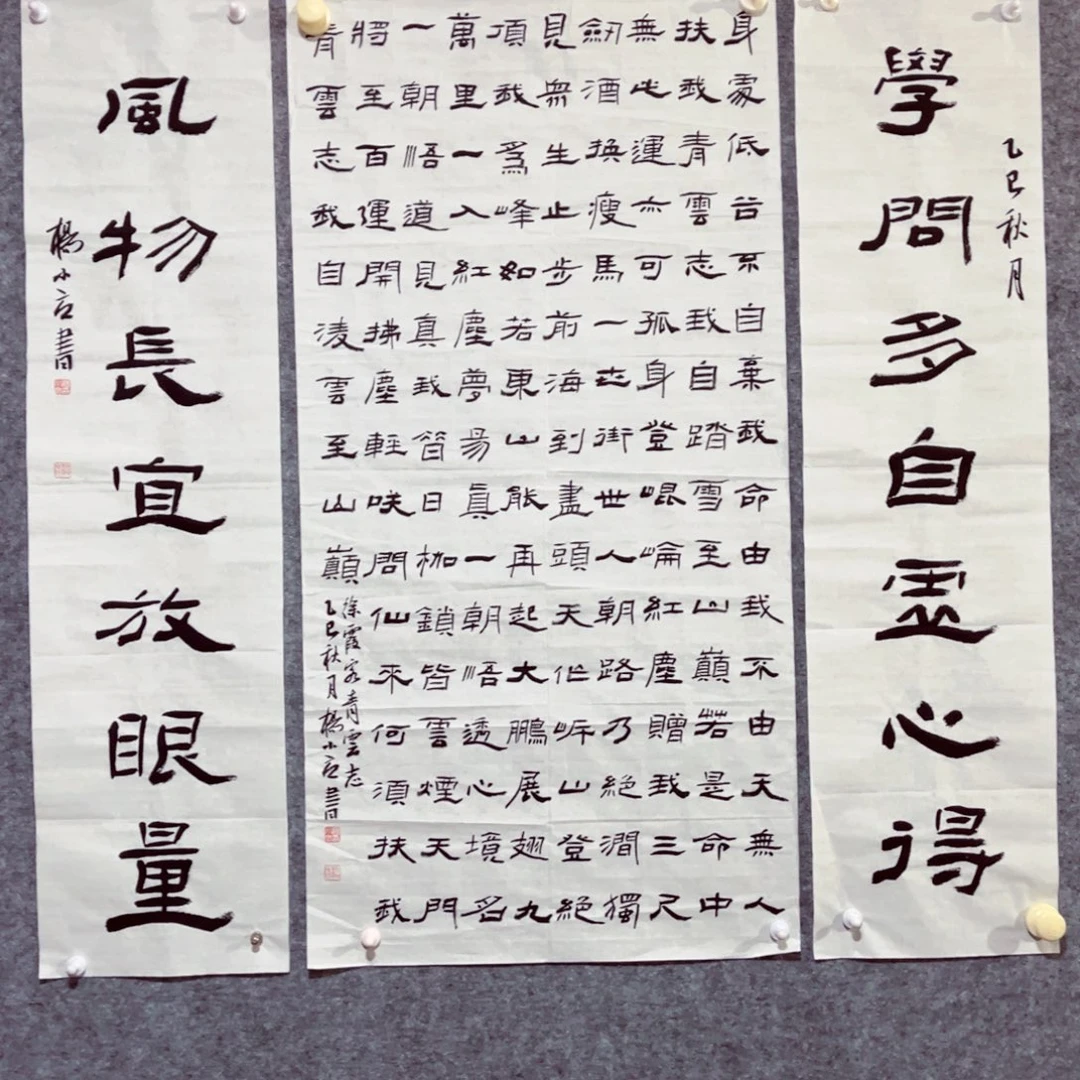 乙巳秋月
學問多自虛心得
身處低谷不自棄我命由我不由天無人
扶我青雲志我自踏雪至山巔若是命中
無此運亦可孤身登崐崘紅塵贈我三尺
劒酒換瘦馬一世街世人朝路乃絕澗獨
見眾生止步前海到盡頭天作岸山登絕
頂我爲峰如若東山能再起大鵬展翅九
萬里一入紅塵夢易真一朝悟透心境名
一朝悟道見真我昔日枷鎖皆雲煙天門
將至百運開拂塵輕咲問仙來何須扶我
青雲志我自淩雲至山巔
徐霞客青雲志
乙巳秋月楊小書
風物長宜放眼量
楊小書